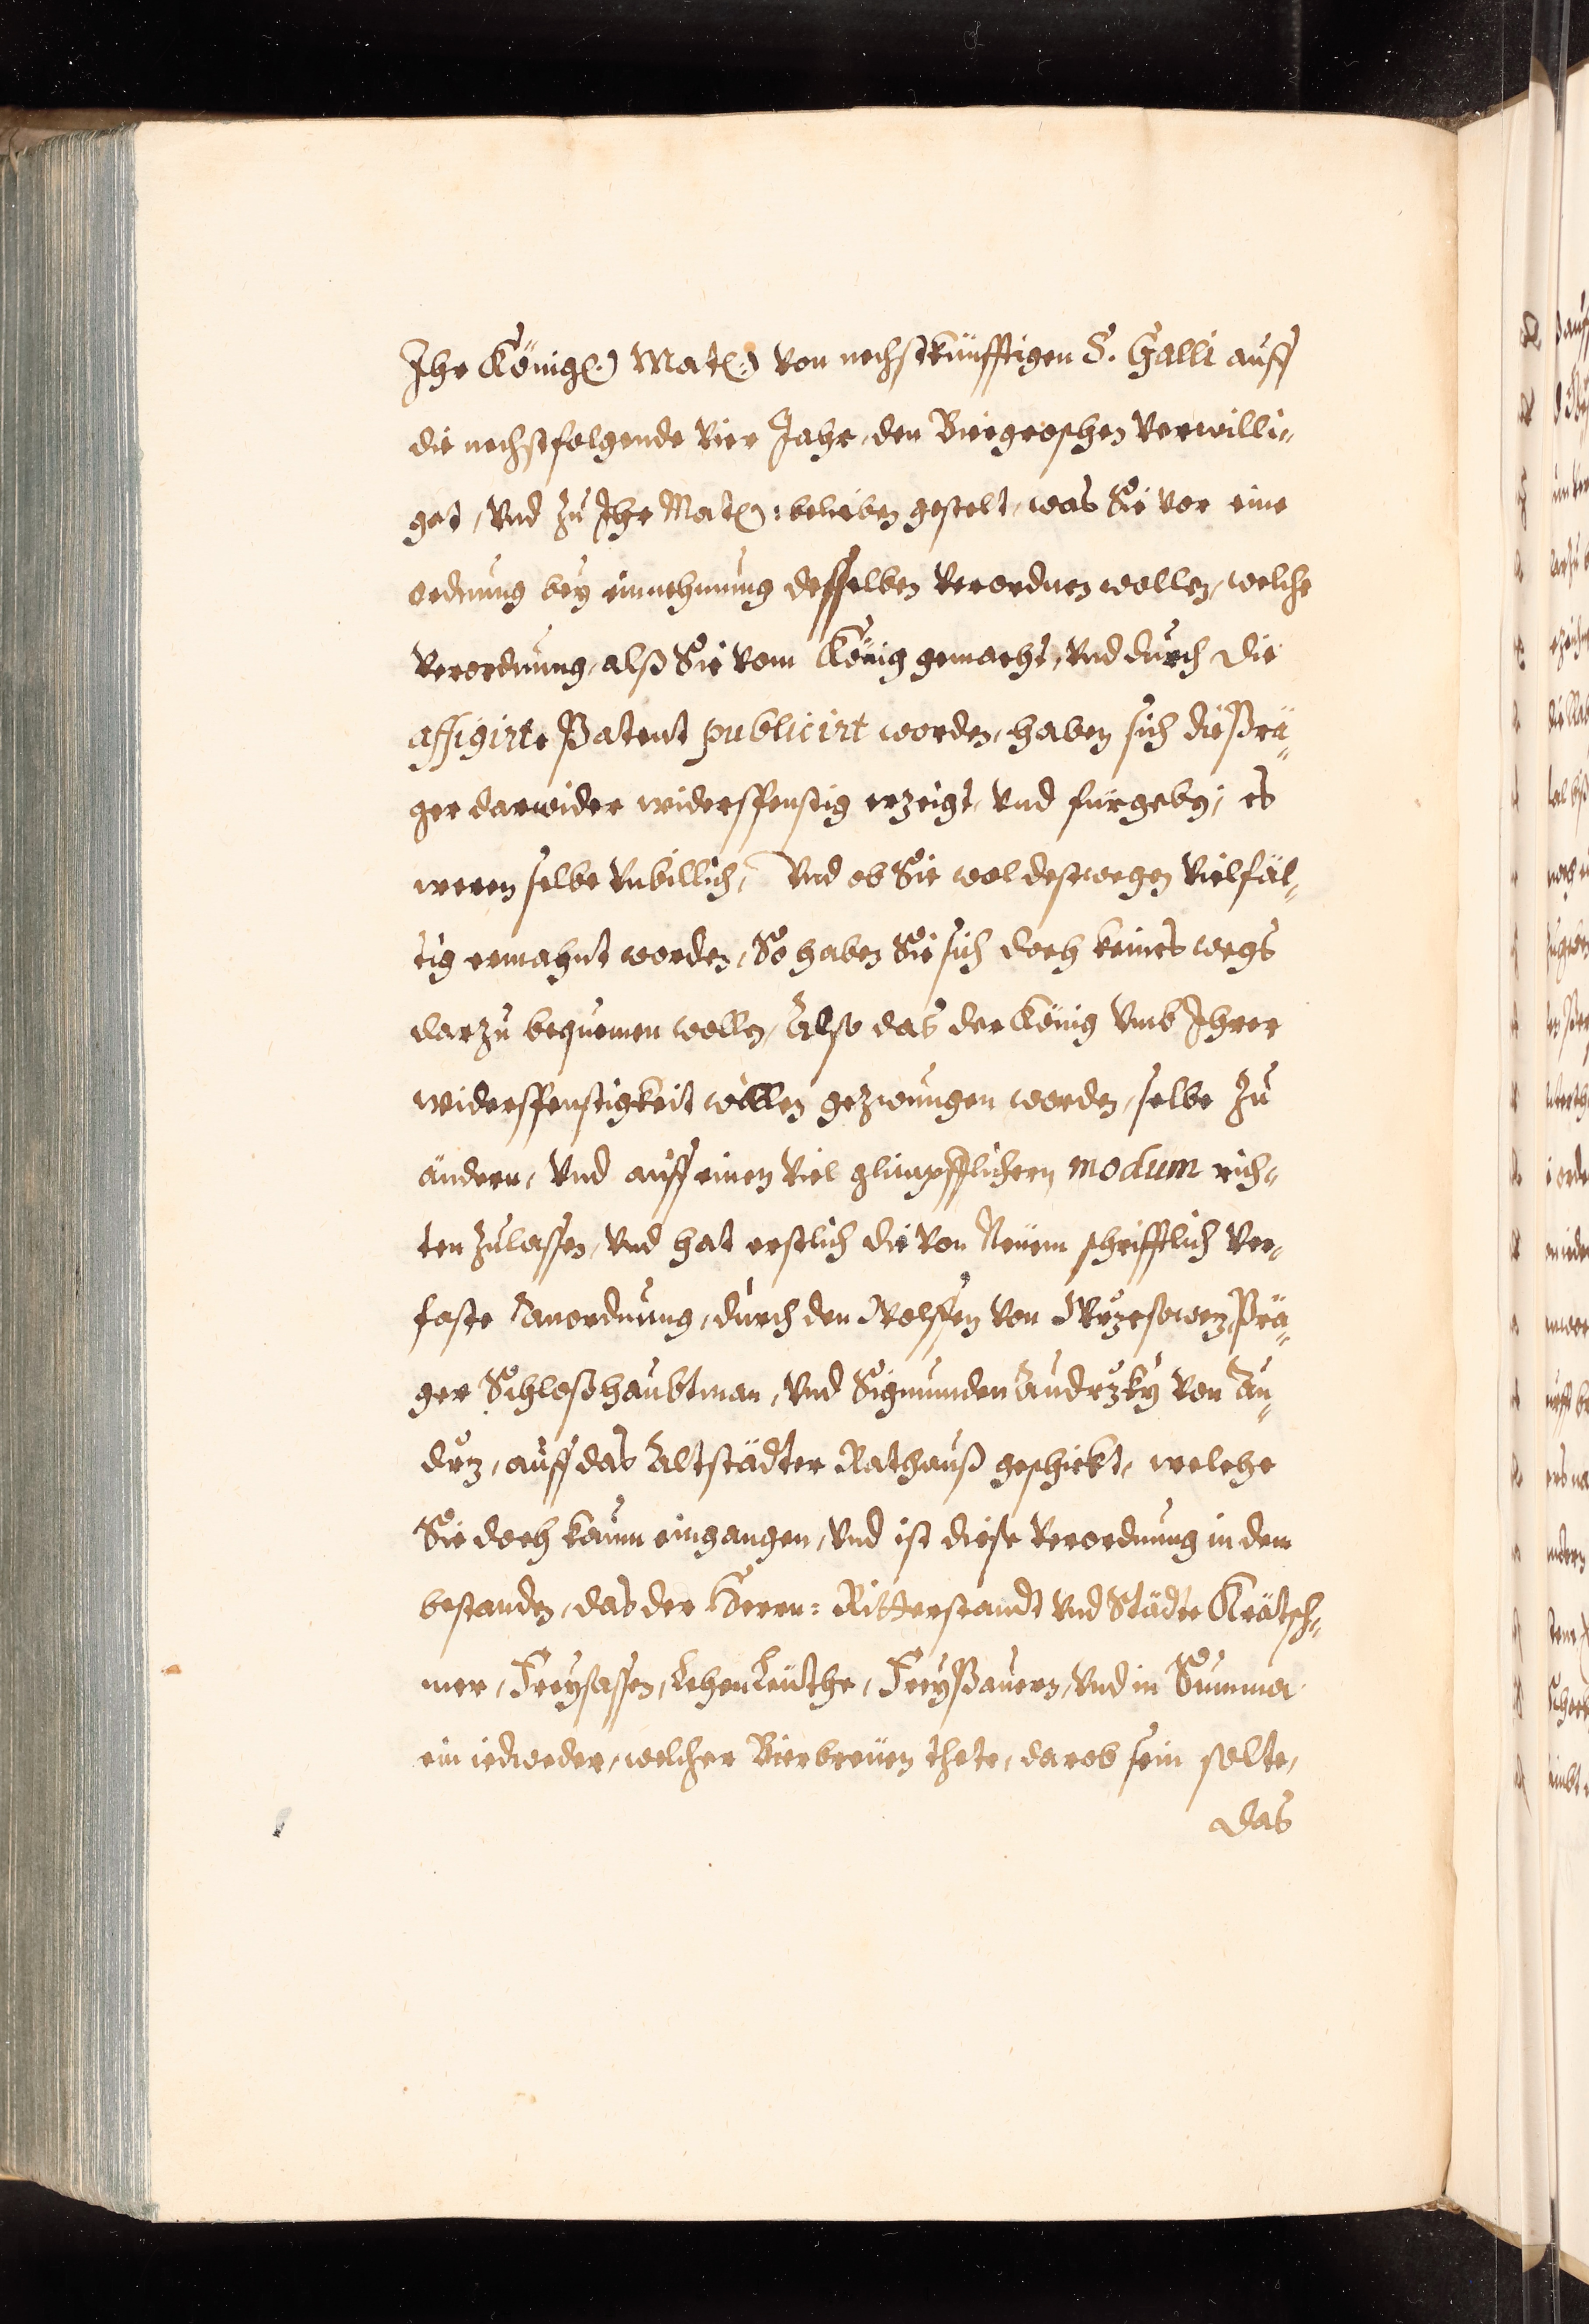 Ihr König(.) Mat(.) von nechstkünfftigen S. Galli auff
die nechstfolgende Vier Jahr, den Biergroschen Verwilli-
get, Vnd zu Ihr Mat(.): belieben gestelt, was Sie vor eine
ordnung bey einnehmung desselben Verordnen wollen, welche
Verordnung, alß Sie Vom König gemacht, Vnd durch die
affigirte Patent publicirt worden, haben sich die Pra-
ger darwider widerspenstig erzeigt, Vnd fürgeben, es
weren selbe Vnbillich, Vnd ob Sie wol destwegen Vielfäl-
tig ermahnt worden, So haben Sie sich doch keines wegs
darzu bequemen wollen, Also das der König Vmb Ihrer
widerspenstigkeit willen gezwungen worden, selbe zu
ändern, Vnd auff einen Viel glimpfflichern modum rich-
ten zulassen, Vnd hat erstlich die Von Neüem schrifftlich Ver-
faste Anordnung, durch den Wolffen Von Wrzesowez, Prä-
ger Schloßhaubtman, Vnd Sigmunden Audrzky Von Au-
drz, auff das Altstädter Rathauß geschickt, welche
Sie doch kaum eingangen, Vnd ist diese Verordnung in dem
bestanden, das der Herrn: Ritterstandt Vnd Städte Krätsch-
mer, Freysassen, LehenLeüthe, FreyBauern, Vnd in Summa
ein iedweder, welcher Bierbreüen thete, darob sein solte,
das